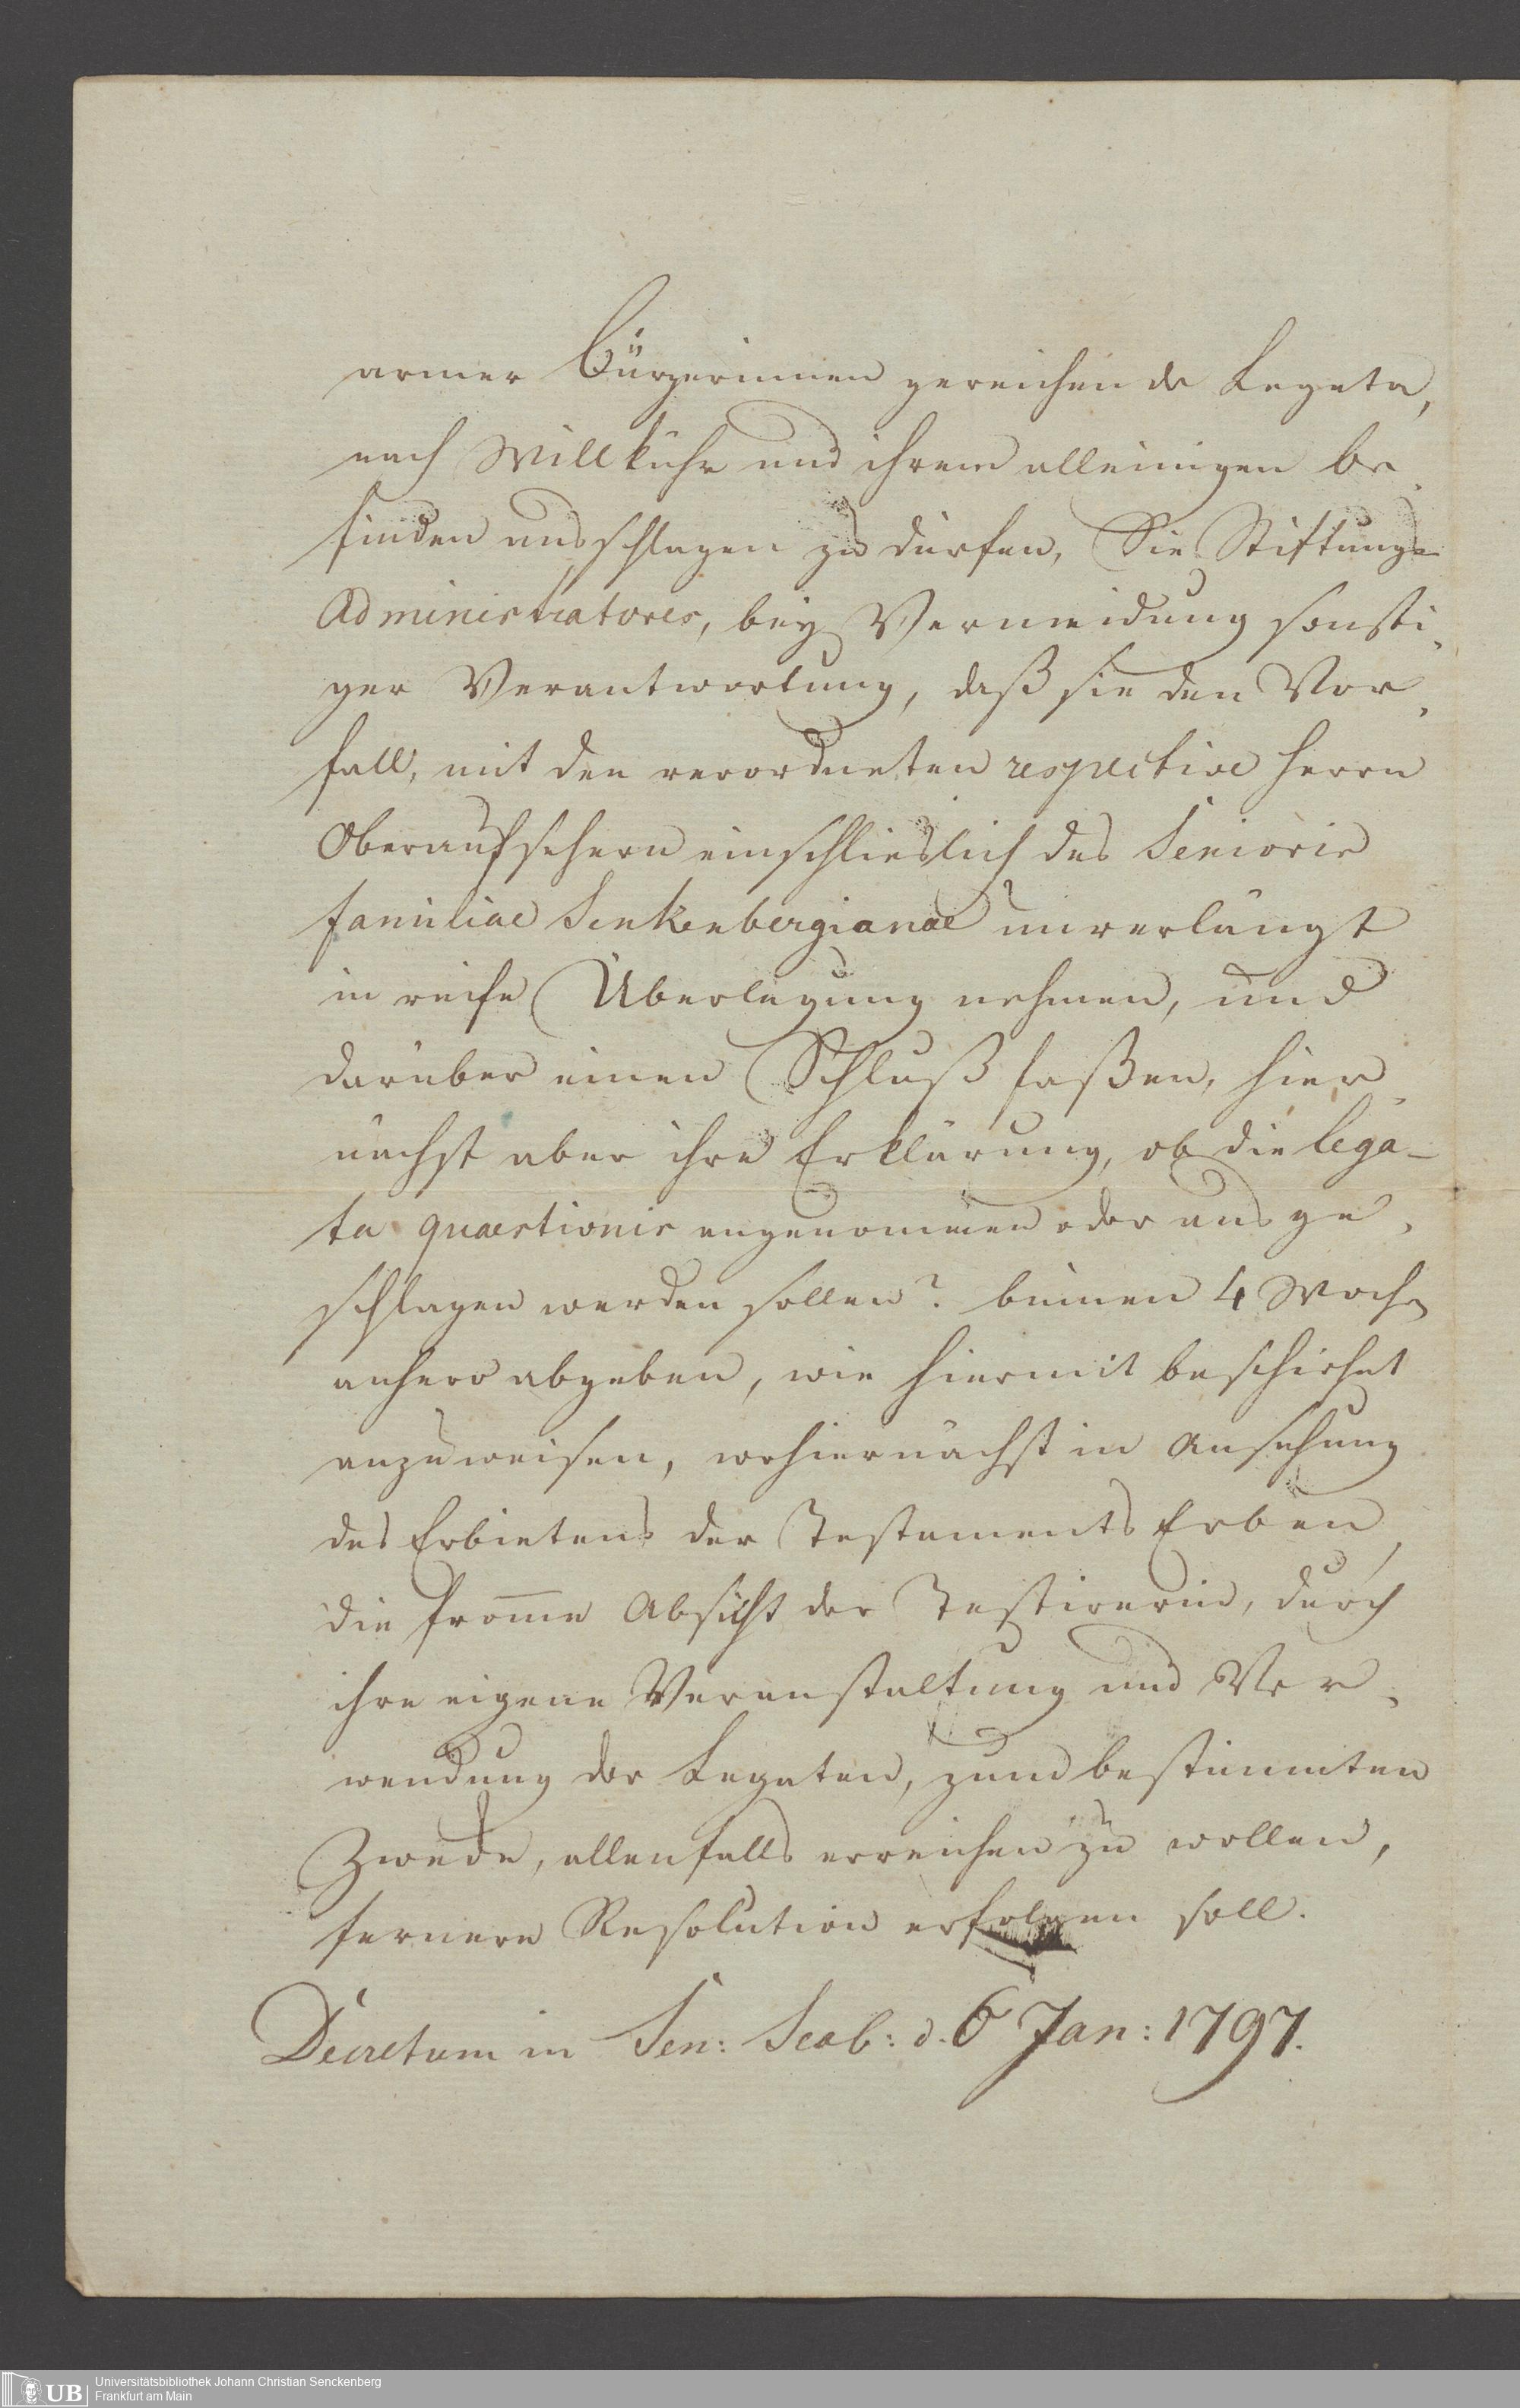 armer Bürgerinnen gereichende Legata,
nach Willkühr und ihrem alleinigen be,
finden ausschlagen zu dürfen, Die Stiftungs
Administratores, bey Vermeidung sonsti,
ger Verantwortung, daß sie den Vor,
fall, mit den verordneten respective Herrn
Oberaufsehern einschlieslich des Senioris
familiae Senkenbergianae unverlängt
in reife Überlegung nehmen, und
darüber einen Schluß faßen, hier,
nächst aber ihre Erklärung, ob die lega-
ta quaestionis angenommen oder ausge,
schlagen werden sollen? binnen 4 Woch
anhero abgeben, wie hiermit beschiehet
anzuweisen, wohiernächst in Ansehung
des Erbietens der Testaments Erben,
die from̅e Absicht der Testirerin, durch
ihre eigene Veranstaltung und Ver,
wendung der Legaten, zum bestimmten
Zwecke, allenfalls erreichen zu wollen,
fernere Resolution erfolgen soll.
Decretum in Sen: Scab: d. 6 Jan: 1797.
UB Universitätsbibliothek Johann Christian Senckenberg
Frankfurt am Main